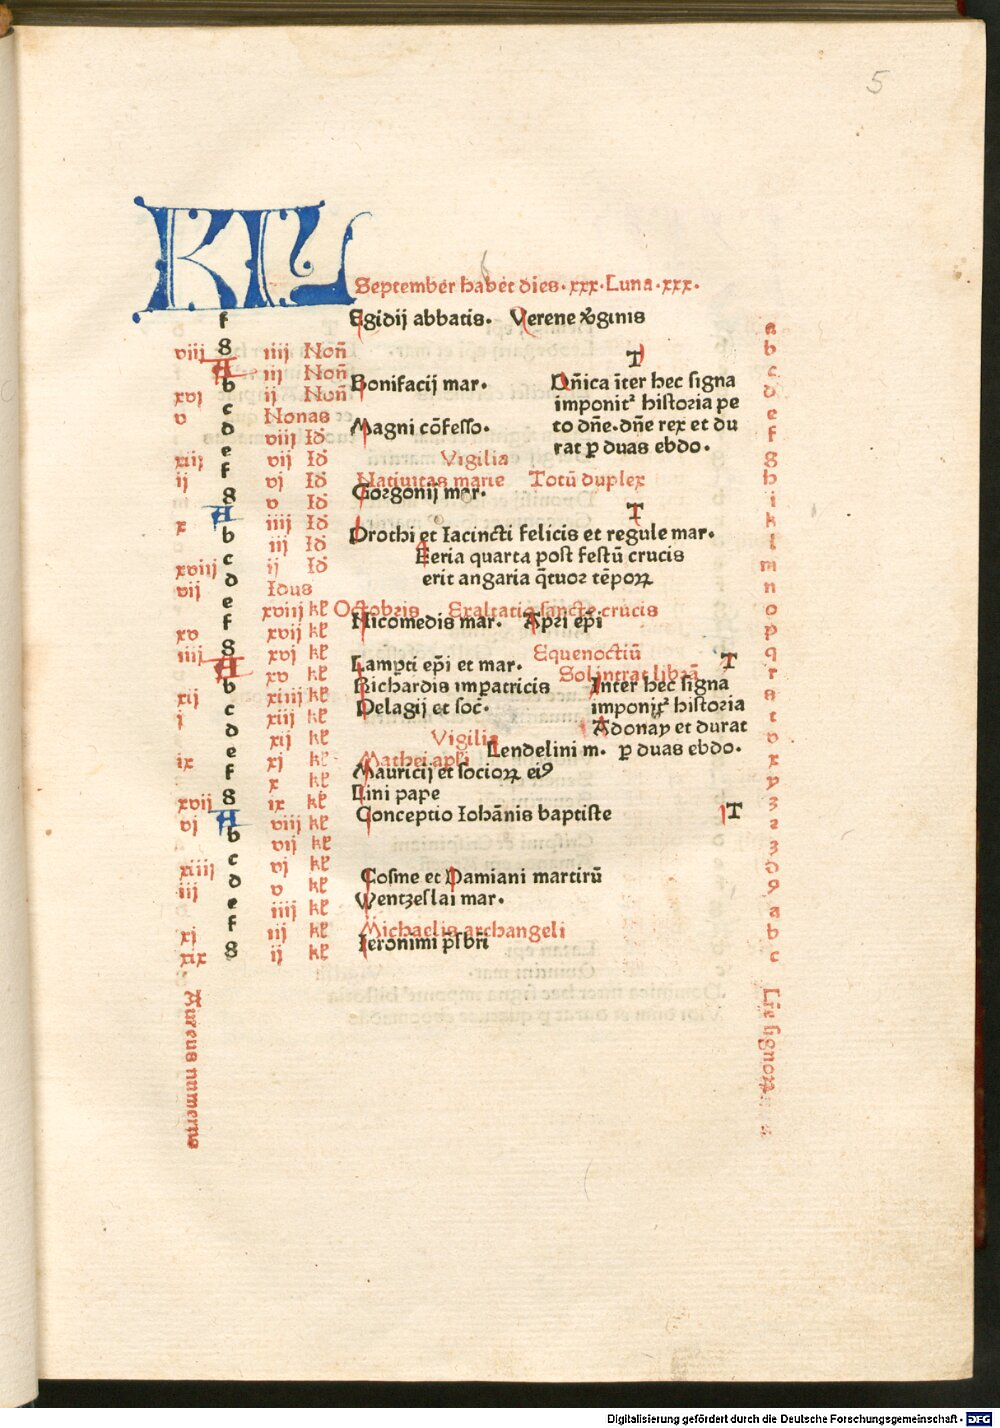 5
KL
September habet dies · xxx · Luna · xxx ·
f Egidij abbatis. Verene v̄ginis a
viij g iiij Non̄ b
T
A iij Non̄ c
xvj b ij Non̄ Bonifacij mar. Dn̄ica īter hec signa d
v c Nonas imponit᷑ historia pe e
d viij Id Magni cōfesso. to dn̄e. dn̄e rex et du f
xiij e vij Id Vigilia rat ꝑ duas ebdo. g
ij f vj Id Natiuitas marie Totū duplex h
g v Id Gorgonij mar. i
x A iiij Id T k
b iij Id Prothi et Iacincti felicis et regule mar. l
xviij c ij Id Feria quarta post festū crucis m
vij d Idus erit angaria q̄tuor tēpoꝝ n
e xviij kl Octobris Exaltatio sancte crucis o
xv f xvij kl Nicomedis mar. Apri ep̄i p
iiij g xvj kl Equenoctiū q
A xv kl Lamp̄ti ep̄i et mar. Sol intrat librā T r
xij b xiiij kl Richardis imꝑatricis Inter hec signa s
j c xiij kl Pelagij et soc̄. imponit᷑ historia t
d xij kl Vigilia Adonay et durat v
ix e xj kl Mathei ap̄li Wendelini m. ꝑ duas ebdo. x
f x kl Mauricij et socioꝝ eiꝰ y
xvij g ix kl Lini pape z
vj A viij kl Conceptio Iohānis baptiste T ꝛ
b vij kl 3
xiiij c vj kl d
iij d v kl Cosme et Damiani martirū 9
e iiij kl Wentzeslai mar. a
xj f iij kl Michaelis archangeli b
xix g ij kl Ieronimi p̄sbri c
Aureus numerus
Digitalisierung gefördert durch die Deutsche Forschungsgemeinschaft - DFG